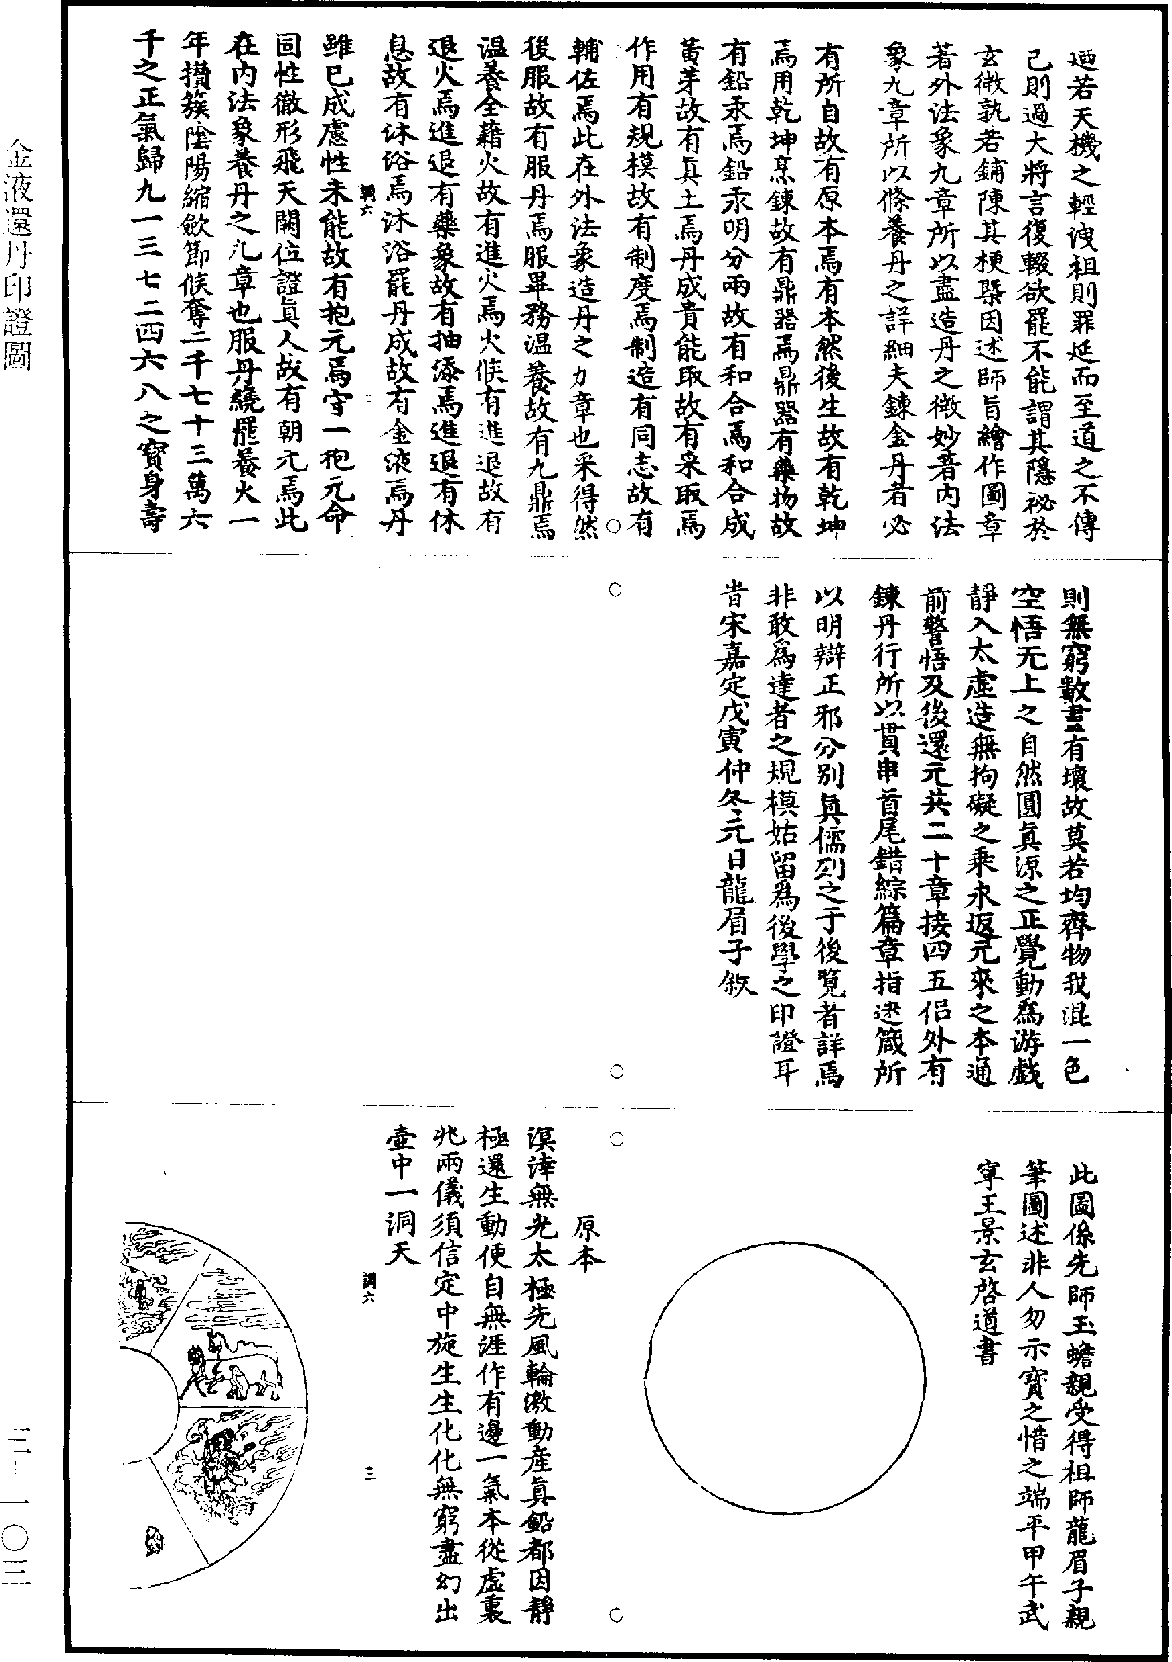 迺若天機之輕洩祖則罪延而至道之不傳
己則過大將言復輟欲罷不能謂其隱祕於
玄微孰若鋪陳其梗槩因述師旨繪作圖章
著外法象九章所以盡造丹之微妙著內法
象九章所以條養丹之詳細夫鍊金丹者必
有所自故有原本焉有本然後生故有乾坤
焉用乾坤烹鍊故有鼎器焉鼎器有藥物故
有鉛汞焉鉛汞明分兩故有和合焉和合成
黃芽故有真土焉丹成貴能取故有采取焉
作用有規模故有制度焉制造有同志故有
輔佐焉此在外法象造丹之九章也采得然
後服故有服丹焉服畢務温養故有九鼎焉
温養全藉火故有進火焉火候有進退故有
退火焉進退有藥象故有抽添焉進退有休
息故有沐浴焉沐浴罷丹成故有金液焉丹
調六 二
雖已成慮性未能故有抱元焉守一抱元命
同性徹形飛天關位證真人故有朝元焉此
在內法象養丹之九章也服丹纔罷養火一
年攢簇陰陽縮歛節候奪二千七十三萬六
千之正氣歸九一三七二四六八之寶身壽
則無窮數晝有壞故莫若均齊物我混一色
空悟无上之自然圓真源之正覺動為游戲
靜入太虛造無拘礙之乘永返元來之本通
前警悟及後還元共二十章接四五侣外有
鍊丹行所以貫串首尾錯綜篇章指迷箴所
以明辯正邪分別真儒列之于後覽者詳焉
非敢為達者之規模姑留為後學之印證耳
旹宋嘉定戊寅仲冬元日龍眉子敘
此圖係先師玉蟾親受得祖師龍眉子親
筆圖述非人勿示寶之惜之端平甲午武
寧王景玄啓道書
原本
溟涬無光太極先風輪激動產真鉛都因靜
極還生動便自無涯作有邊一氣本從虛裏
兆兩儀須信定中旋生生化化無窮盡幻出
壺中一洞天
調六 三
金液還丹印證圖
三—一〇三